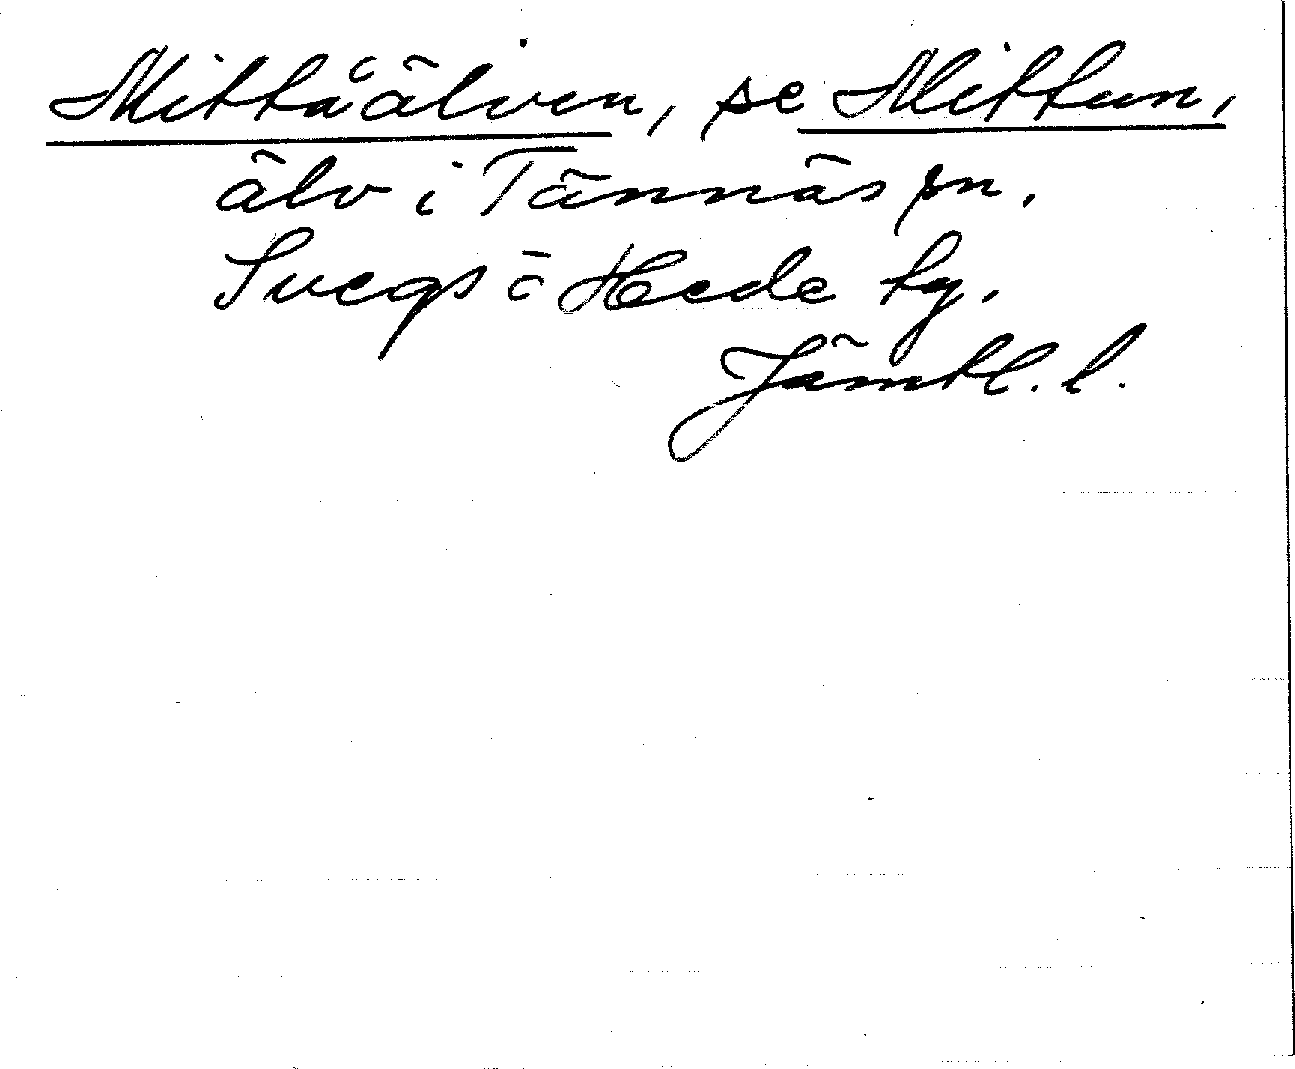 Mittåälven, se Mittun,
älv i Tännäs sn.
Svegs o Hede tg.
Jämtl. l.